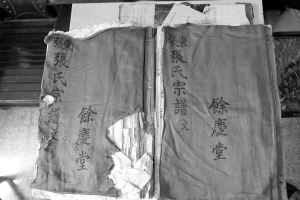 東
張氏宗譜文
餘慶堂
東
張氏宗譜文
餘慶堂